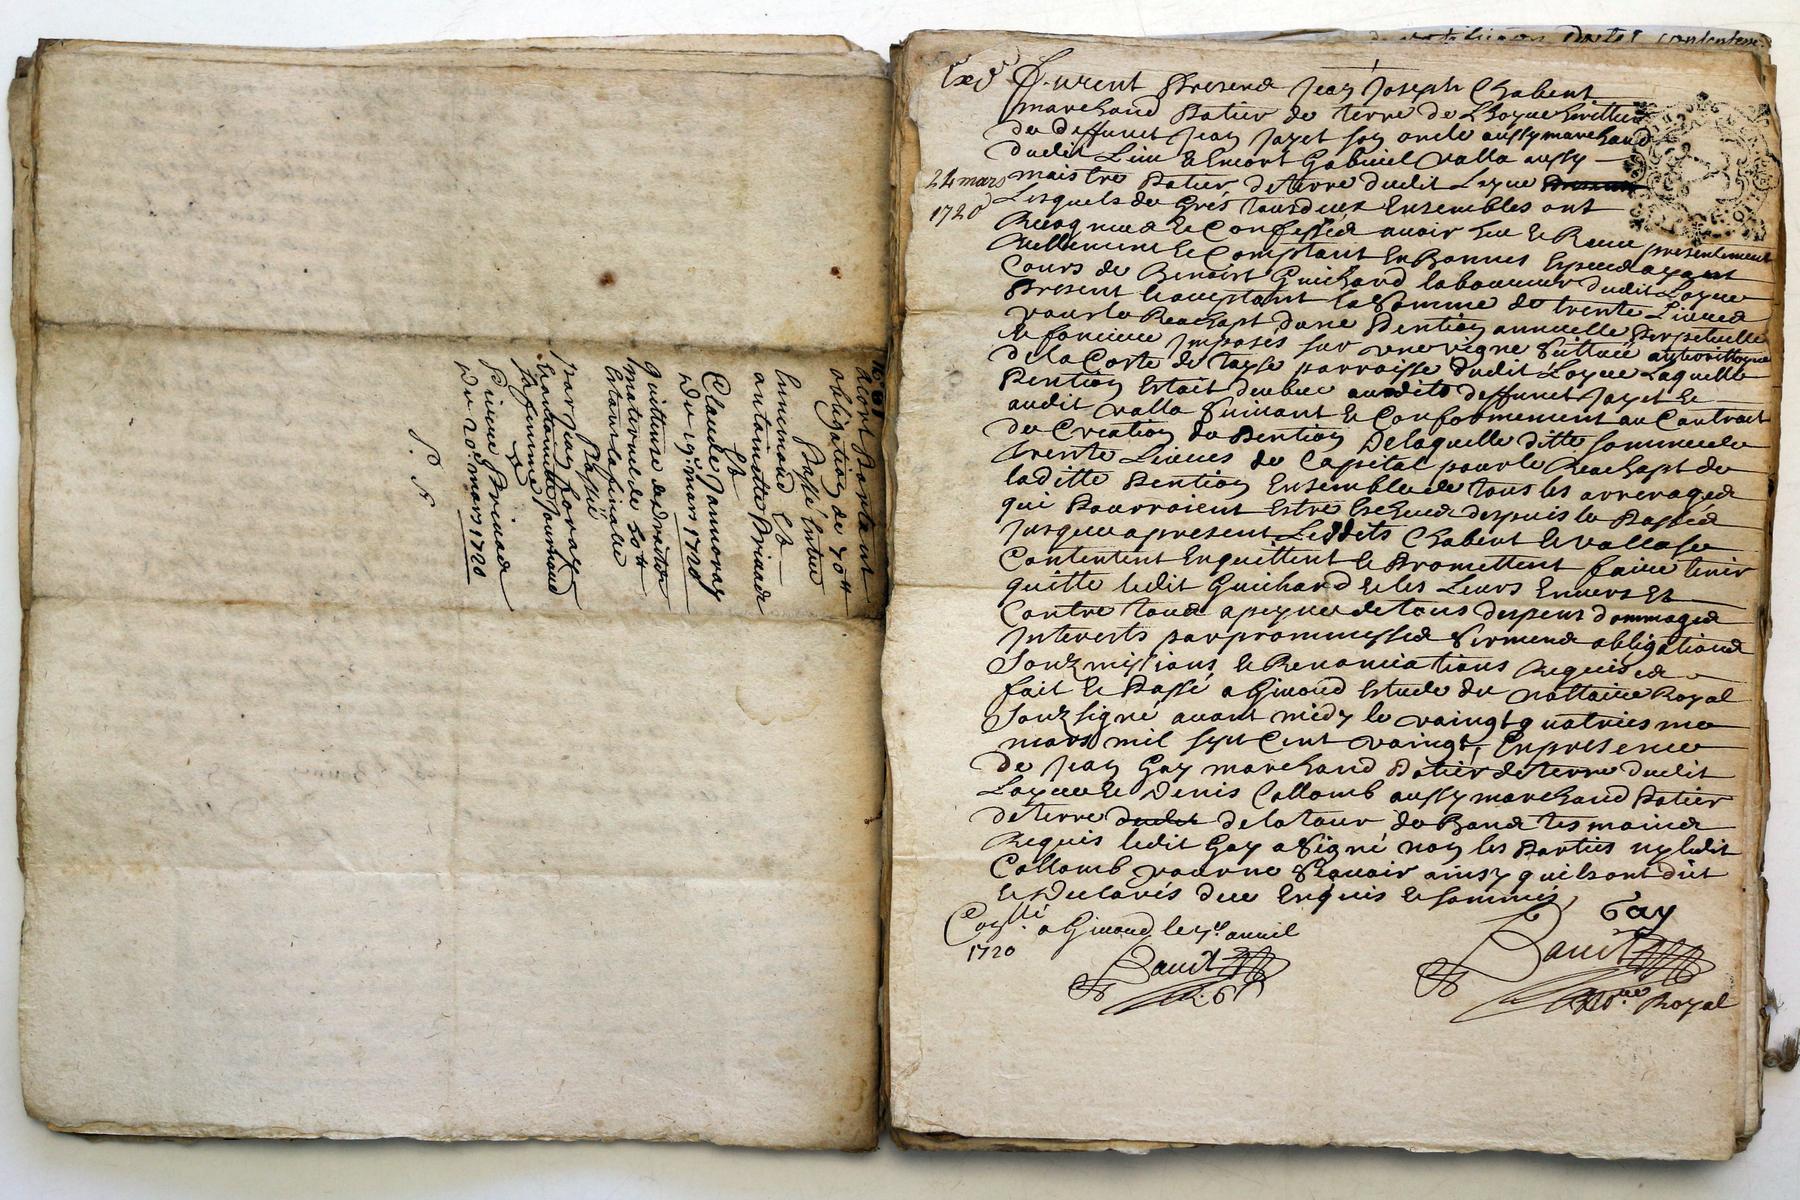 Alort Portant
obligation de 70 ₶
Passé Entre
antoinette Privade
Et
Claude Jannoray
Du 19e. mars 1720
quittense de droitz
maternel de 50 ₶
Passeé
par Jean
Et antoinette fournaud
sa femme
a
Pierre Privade
Du 20e. mars 1720
Exdé
24 mars
1720
furent Presend Jean Joseph Chabert
marchand Potier de terre de Lhoyue herittier
de deffunct Jean Jayet son oncle aussy marchand
dudit Lieu & Encort Gabriel valla aussy
maistre Potier de terre dudit Loyue
Lesquels de Grés tousdeux Ensembles ont
Recognud & Confessed avoir heu & Receu presentement
Reellement & Comptant En Bonnes Especed ayant
Cours de Benoist Guichard laboureur dudit Loyue
Present & aceptant la Somme de trente Livred
pour le Reachapt dune Pention annuelle Perpetuelle
& fonciere Imposés sur une vigne Sittuée
de la Coste de parroisse dudit Loyue Laquelle
Pention Estait deube audit deffunct Jayet &
audit valla Suivant & Conformement au Contrait
de Creation de Pention De laquelle ditte somme de
trente Livres de Capital pour le Reachapt de
laditte Pention Ensemble de tous les arreraged
qui Pourraient Estre Escheud despuis le Passed
Jusques apresent Lesdits Chabert & valla se
Contentent En quittent & Promettent faire tenir
quitte ledit Guichard & les Leurs Envers Et
Contre toud a peyne de tous despens dommaged
Interests par promessed Sermend obligationd
Souzmissions & Renonciations Requised
fait & Passé a Givord Estude du nottaire Royal
Souzsigné avant midy le vaingt quatriesme
mars mil sept Cent vaingt, En presence
de Jean Gay marchand Potier de terre dudit
Loyue & Denis Collomb aussy marchand Potier
de terre dudit de la tour du Band tesmoind
Requis ledit Gay a Signé non les Parties ny ledit
Collomb pour ne Scavoir ainsy quils ont dit
& Declarés de ce Enquis & sommés,
Gay
Conllé a Givord le 7e. avril
1720
Baudt
Baudt
Royal